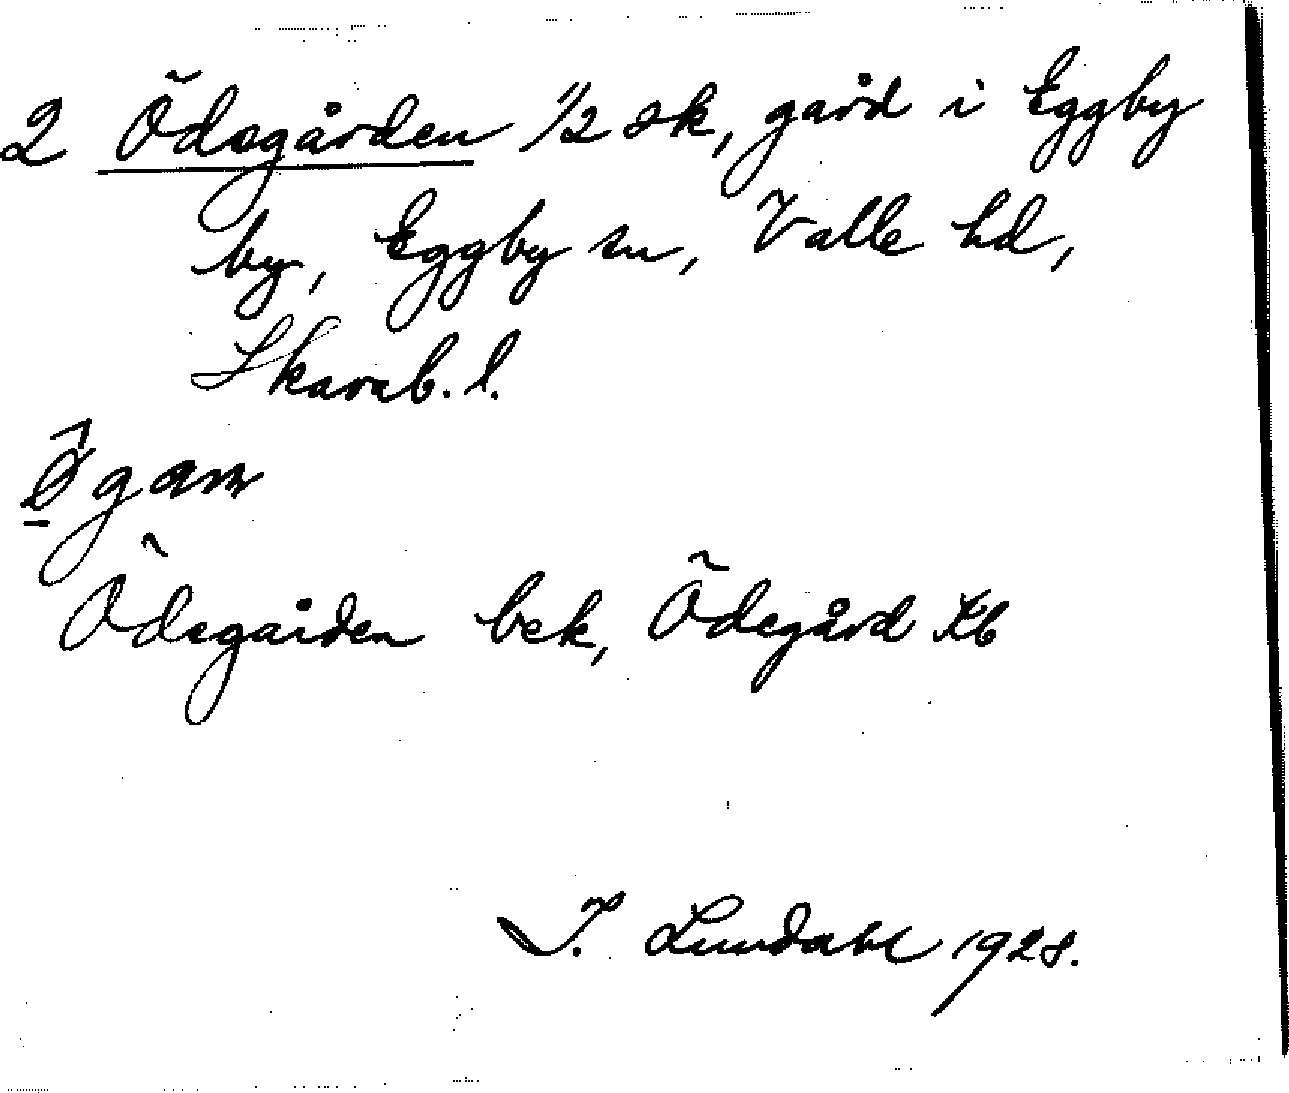 2 Ödegården 1/2 sk, gård i Eggby
by, Eggby sn, Valle hd,
Skarab. l.
Ödegården bek, Ödegård Kb
I. Lundahl 1928.